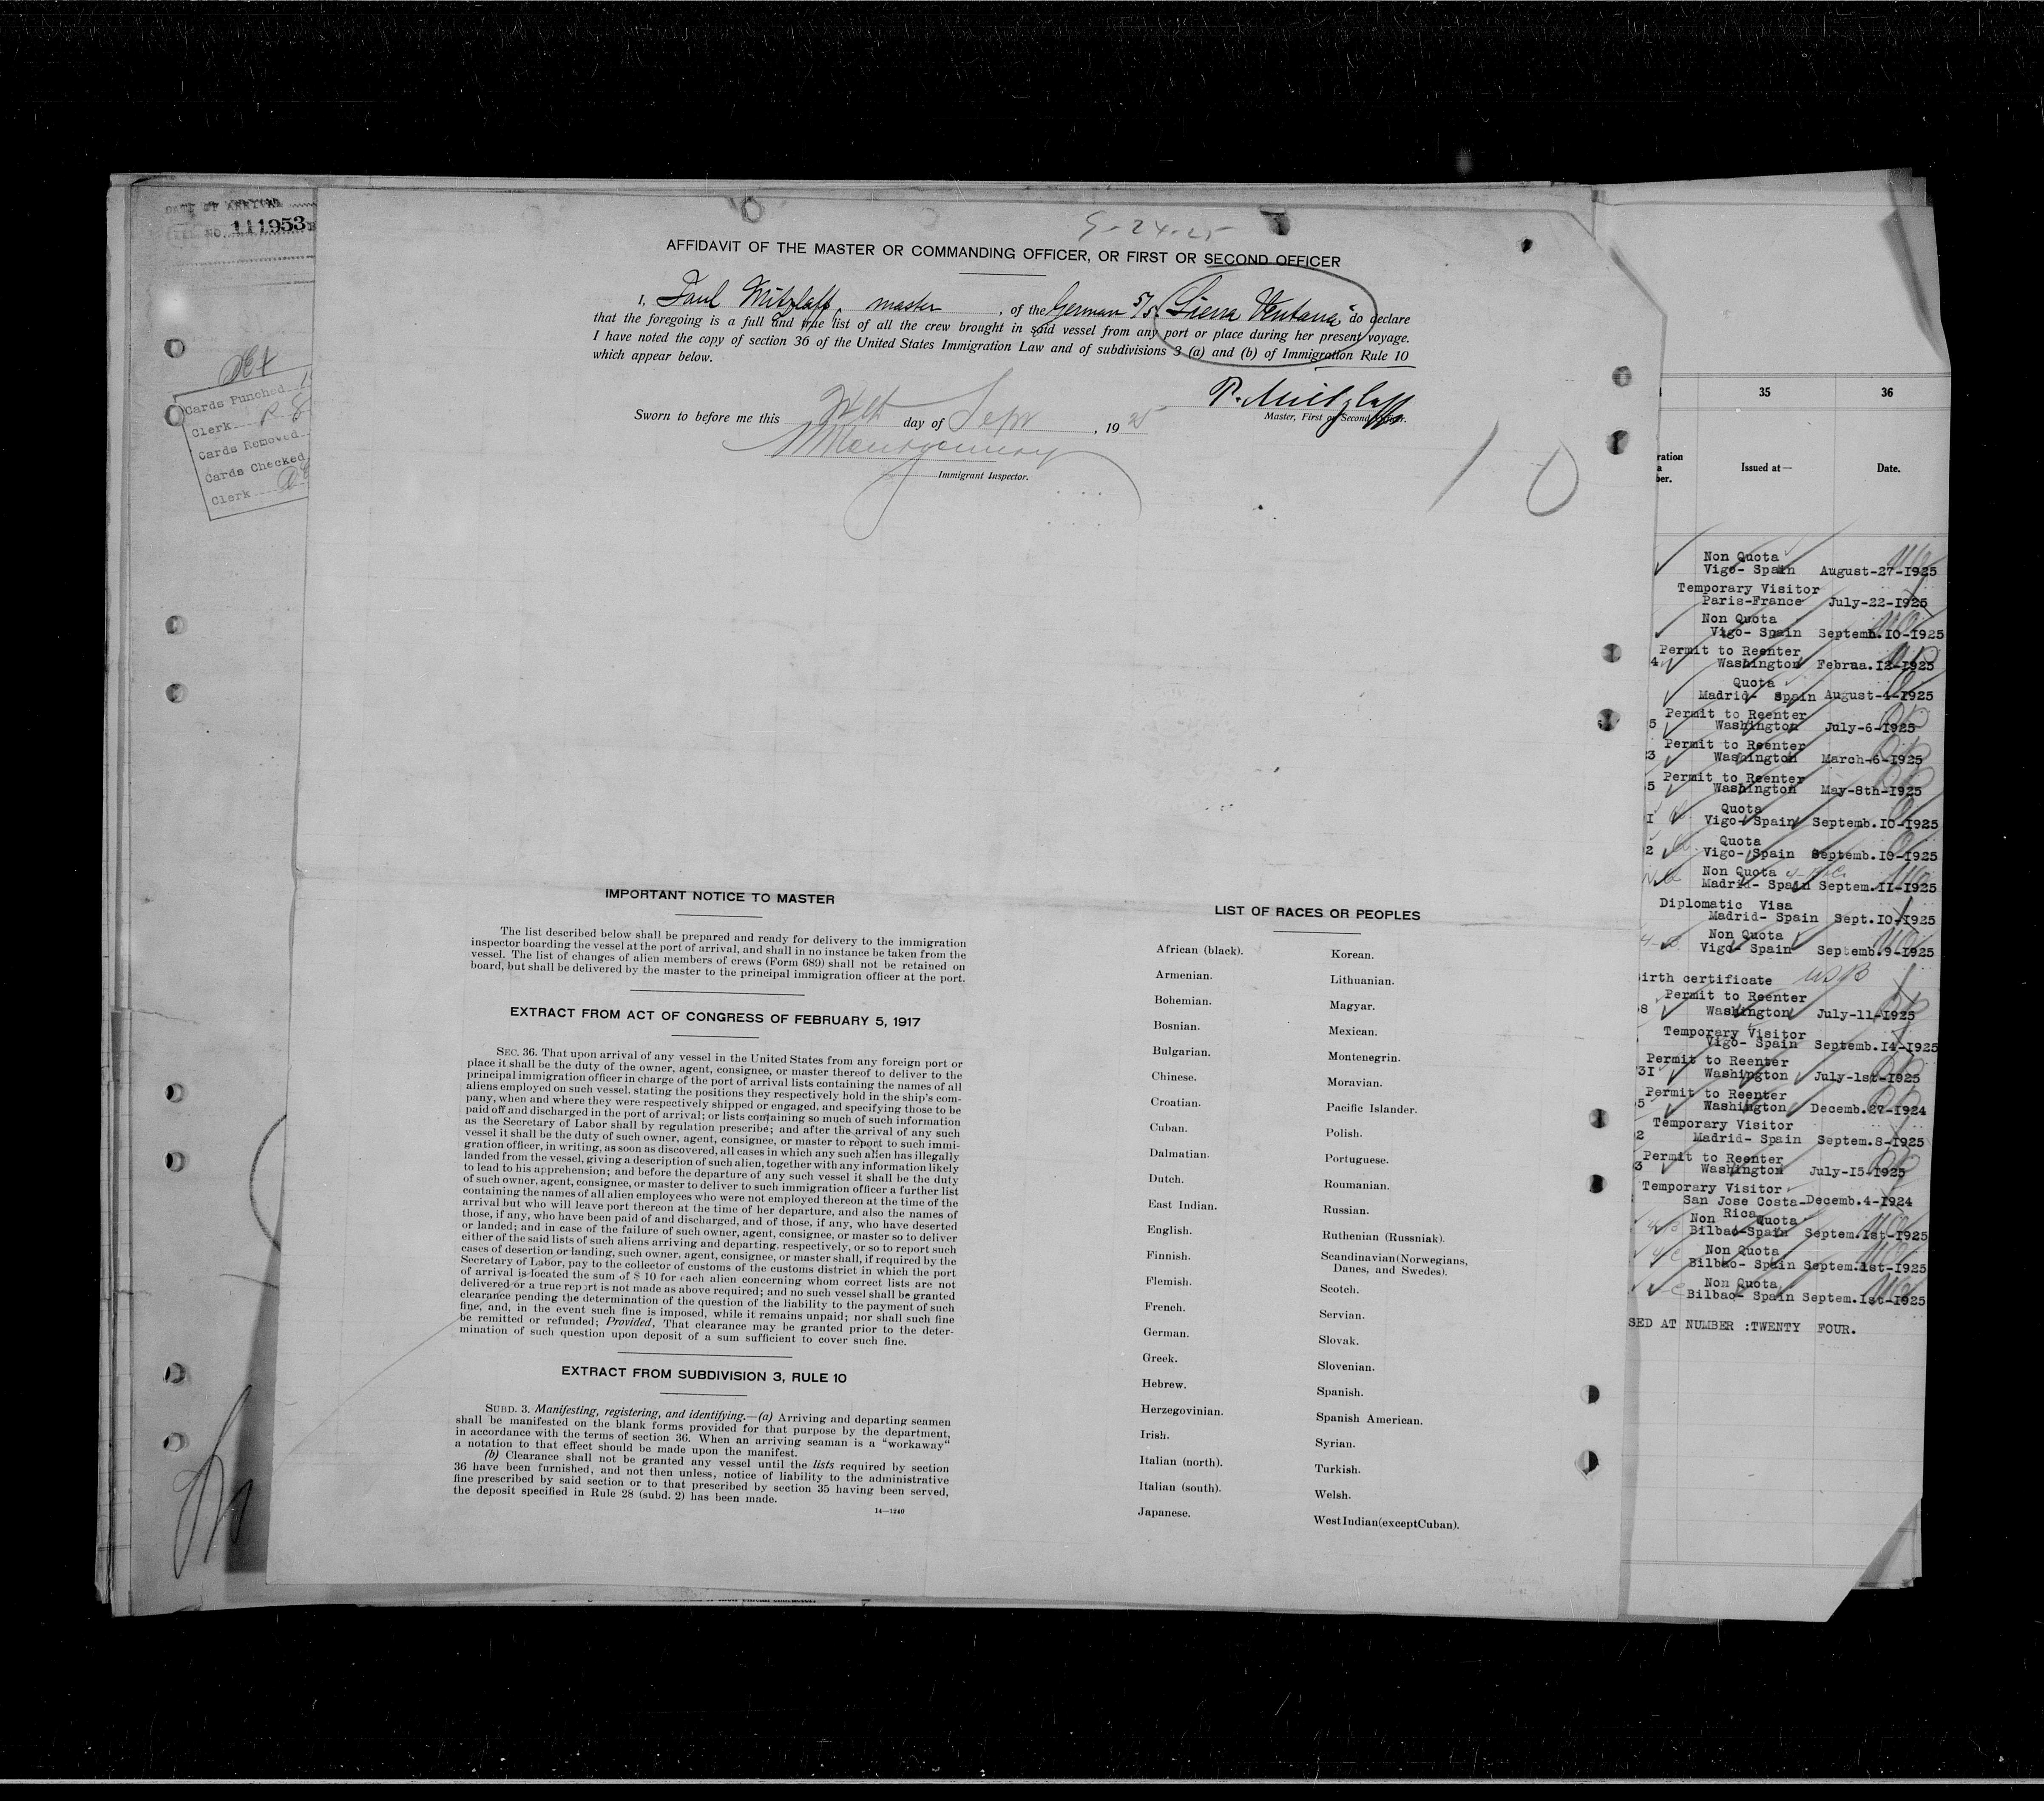 DATE OF ARRIVAL
REEL NO. 111953
Cards Punched
Clerk
Cards Removed
Cards Checked
Clerk
9-24-25
AFFIDAVIT OF THE MASTER OR COMMANDING OFFICER, OR FIRST OR SECOND OFFICER
I, Paul Mitzlaff, master, of the German S/S. "Sierra Ventana" do declare
that the foregoing is a full and true list of all the crew brought in said vessel from any port or place during her present voyage.
I have noted the copy of section 36 of the United States Immigration Law and of subdivisions 3 (a) and (b) of Immigration Rule 10
which appear below.
P. Mitzlaff
Master, First or Second Officer.
Sworn to before me this 24th day of Sepr, 1925
Montgomery
Immigrant Inspector.
10
IMPORTANT NOTICE TO MASTER
The list described below shall be prepared and ready for delivery to the immigration
inspector boarding the vessel at the port of arrival, and shall in no instance be taken from the
vessel. The list of changes of alien members of crews (Form 689) shall not be retained on
board, but shall be delivered by the master to the principal immigration officer at the port.
EXTRACT FROM ACT OF CONGRESS OF FEBRUARY 5, 1917
SEC. 36. That upon arrival of any vessel in the United States from any foreign port or
place it shall be the duty of the owner, agent, consignee, or master thereof to deliver to the
principal immigration officer in charge of the port of arrival lists containing the names of all
aliens employed on such vessel, stating the positions they respectively hold in the ship's com-
pany, when and where they were respectively shipped or engaged, and specifying those to be
paid off and discharged in the port of arrival; or lists containing so much of such information
as the Secretary of Labor shall by regulation prescribe; and after the arrival of any such
vessel it shall be the duty of such owner, agent, consignee, or master to report to such immi-
gration officer, in writing, as soon as discovered, all cases in which any such alien has illegally
landed from the vessel, giving a description of such alien, together with any information likely
to lead to his apprehension; and before the departure of any such vessel it shall be the duty
of such owner, agent, consignee, or master to deliver to such immigration officer a further list
containing the names of all alien employees who were not employed thereon at the time of the
arrival but who will leave port thereon at the time of her departure, and also the names of
those, if any, who have been paid of and discharged, and of those, if any, who have deserted
or landed; and in case of the failure of such owner, agent, consignee, or master so to deliver
either of the said lists of such aliens arriving and departing, respectively, or so to report such
cases of desertion or landing, such owner, agent, consignee, or master shall, if required by the
Secretary of Labor, pay to the collector of customs of the customs district in which the port
of arrival is located the sum of $ 10 for each alien concerning whom correct lists are not
delivered or a true report is not made as above required; and no such vessel shall be granted
clearance pending the determination of the question of the liability to the payment of such
fine, and, in the event such fine is imposed, while it remains unpaid; nor shall such fine
be remitted or refunded; Provided, That clearance may be granted prior to the deter-
mination of such question upon deposit of a sum sufficient to cover such fine.
EXTRACT FROM SUBDIVISION 3, RULE 10
SUBD. 3. Manifesting, registering, and identifying.—(a) Arriving and departing seamen
shall be manifested on the blank forms provided for that purpose by the department,
in accordance with the terms of section 36. When an arriving seaman is a "workaway"
a notation to that effect should be made upon the manifest.
(b) Clearance shall not be granted any vessel until the lists required by section
36 have been furnished, and not then unless, notice of liability to the administrative
fine prescribed by said section or to that prescribed by section 35 having been served,
the deposit specified in Rule 28 (subd. 2) has been made.
14—1240
LIST OF RACES OR PEOPLES
African (black).
Armenian.
Bohemian.
Bosnian.
Bulgarian.
Chinese.
Croatian.
Cuban.
Dalmatian.
Dutch.
East Indian.
English.
Finnish.
Flemish.
French.
German.
Greek.
Hebrew.
Herzegovinian.
Irish.
Italian (north).
Italian (south).
Japanese.
Korean.
Lithuanian.
Magyar.
Mexican.
Montenegrin.
Moravian.
Pacific Islander.
Polish.
Portuguese.
Roumanian.
Russian.
Ruthenian (Russniak).
Scandinavian (Norwegians,
Danes, and Swedes).
Scotch.
Servian.
Slovak.
Slovenian.
Spanish.
Spanish American.
Syrian.
Turkish.
Welsh.
West Indian (except Cuban).
35 36
Issued at— Date.
Non Quota
Vigo- Spain August-27-1925
Temporary Visitor
Paris-France July-22-1925
Non Quota
Vigo- Spain Septemb.10-1925
Permit to Reenter
4 Washington Februa.12-1925
Quota
Madrid- Spain August-4-1925
Permit to Reenter
5 Washington July-6-1925
Permit to Reenter
3 Washington March-6-1925
Permit to Reenter
5 Washington May-8th-1925
Quota
1 Vigo-Spain Septemb.10-1925
Quota
2 Vigo- Spain Septemb.10-1925
Non Quota
Madrid- Spain Septem.11-1925
Diplomatic Visa
Madrid- Spain Sept.10-1925
Non Quota
Vigo- Spain Septemb.9-1925
irth certificate USB
Permit to Reenter
8 Washington July-11-1925
Temporary Visitor
Vigo- Spain Septemb.14-1925
Permit to Reenter
31 Washington July-1st-1925
Permit to Reenter
5 Washington Decemb.27-1924
Temporary Visitor
2 Madrid- Spain Septem.8-1925
Permit to Reenter
3 Washington July-15-1925
Temporary Visitor
San Jose Costa-Decemb.4-1924
Rica
Non Quota
Bilbao-Spain Septem.1st-1925
Non Quota
Bilbao- Spain Septem.1st-1925
Non Quota
Bilbao- Spain Septem.1st-1925
SED AT NUMBER :TWENTY FOUR.